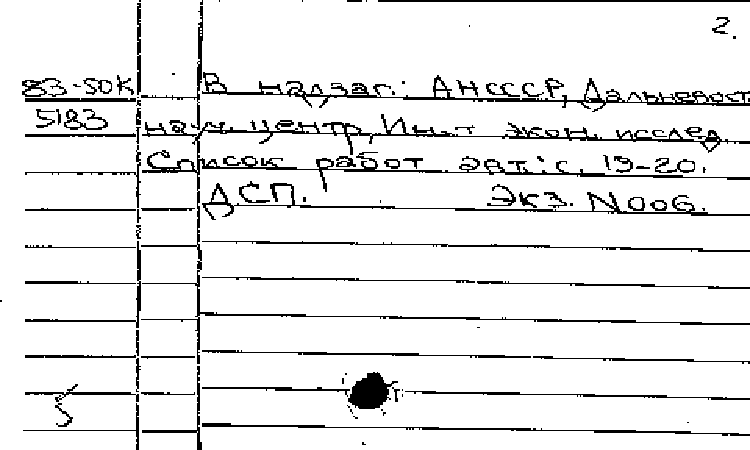 2.
83-50К В надзаг: АНСССР, Дальневост
5183 науч. центр, Ин-т экон. исслед.
Список работ авт: с. 19-20.
ДСП. Экз. N006.
5